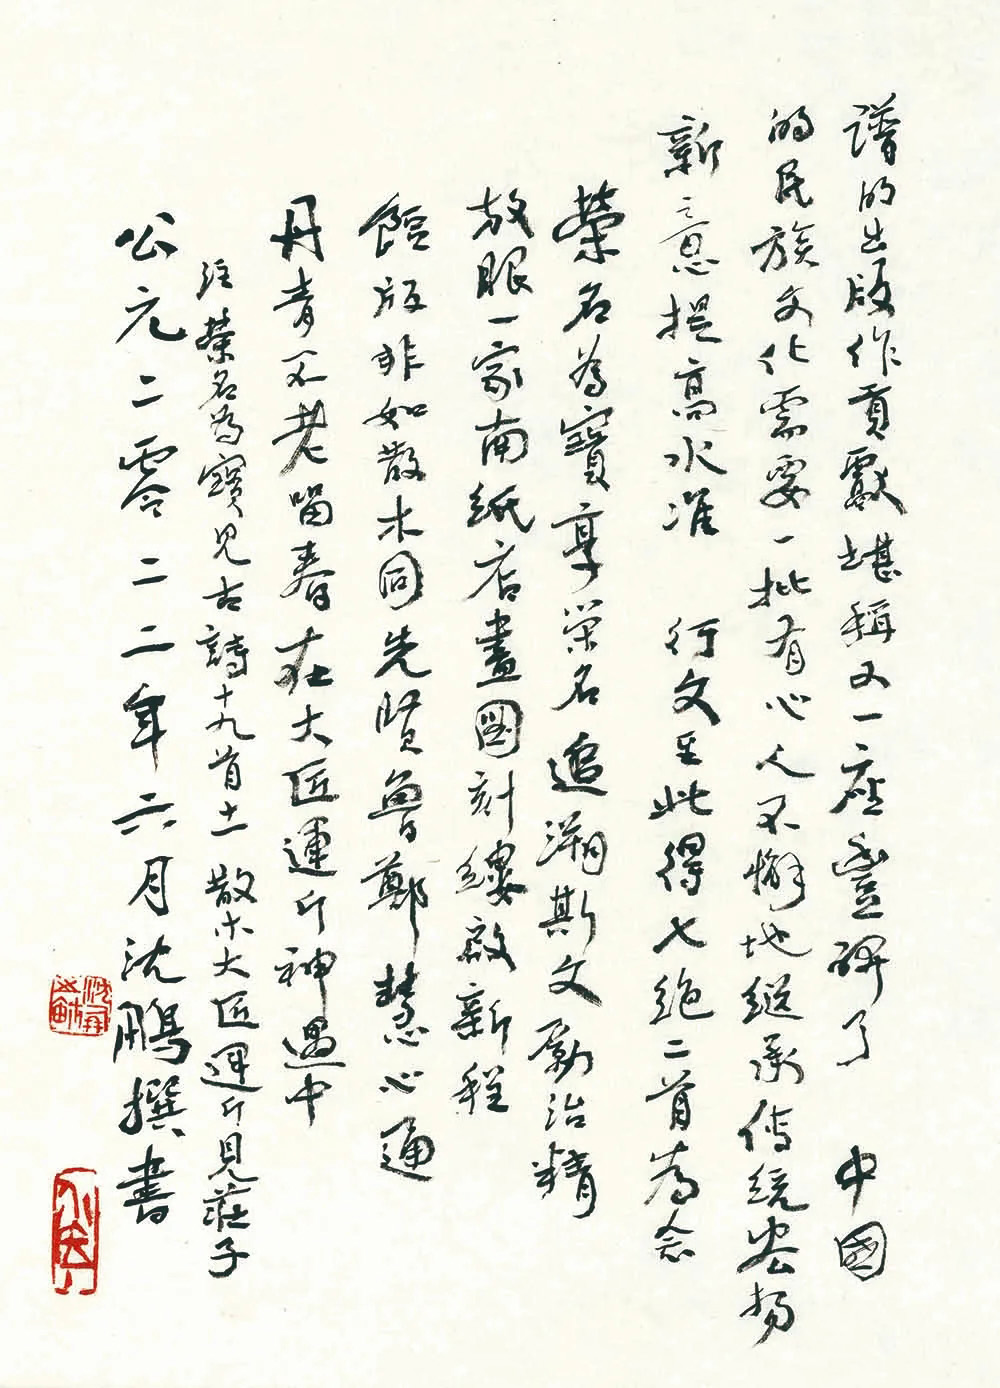 譜的出版作貢獻堪稱又一座豐碑了　中國
的民族文化需要一批有心人不懈地繼承傳統發揚
新意提高水準　行文至此得七絕二首為念
榮名為寶享榮名追溯斯文勵治精
放眼一家南紙店畫圖刻鏤啟新程
餖版非如散木同先賢魯鄭慧心通
丹青不老留春在大匠運斤神遇中
註榮名為寶見古詩十九首十一散木大匠運斤見莊子
公元二零二二年六月沈鵬撰書
沈鵬